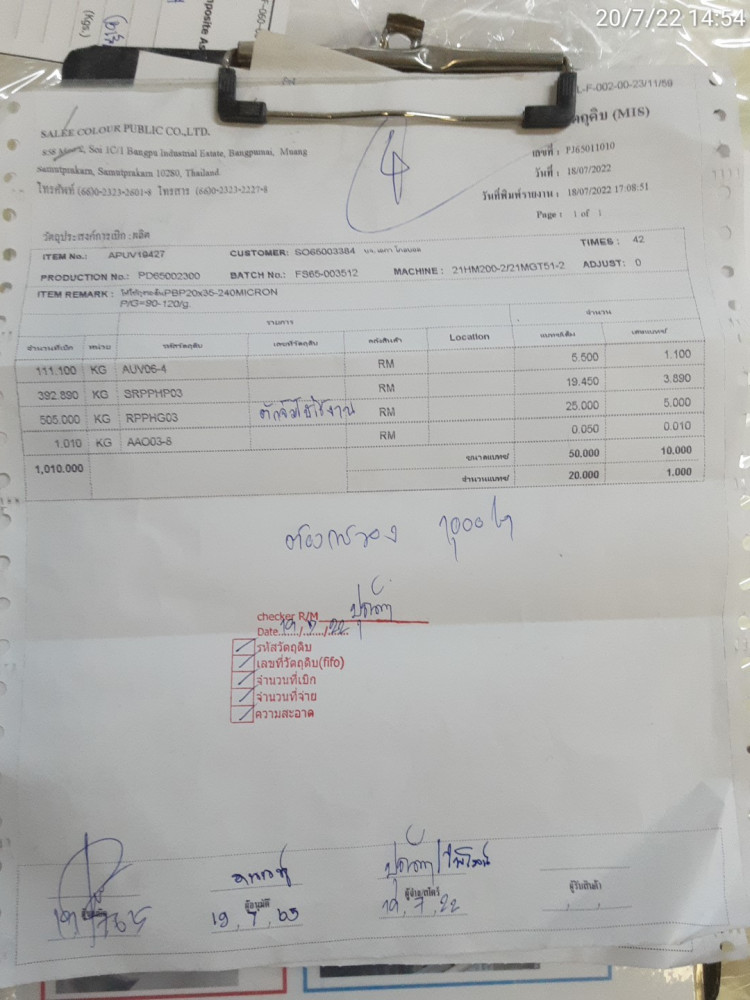 20/7/22 14:54
(Kgs.)
L-F-002-00-23/11/59
SALEE COLOUR PUBLIC CO.,LTD.
Soi 1C/1 Bangpu Industrial Estate, Bangpumai, Muang
Samutprakarn, Samutprakarn 10280, Thailand.
โทรศัพท์ (66)0-2323-2601-8 โทรสาร (66)0-2323-2227-8
(MIS)
เลขที่ : PJ65011010
วันที่ : 18/07/2022
วันที่พิมพ์รายงาน : 18/07/2022 17:08:51
Page : 1 of 1
4
วัตถุประสงค์การเบิก : ผลิต
ITEM No.: APUV19427 CUSTOMER: SO65003384 TIMES : 42
PRODUCTION No.: PD65002300 BATCH No.: FS65-003512 MACHINE : 21HM200-2/21MGT51-2 ADJUST: 0
ITEM REMARK : PBP20x35-240MICRON
P/G=90-120/g.
รายการ จำนวน
จำนวนที่เบิก หน่วย รหัสวัตถุดิบ เลขที่วัตถุดิบ คลังสินค้า Location แบทช์เต็ม เศษแบทช์
111.100 KG AUV06-4 RM 5.500 1.100
392.890 KG SRPPHP03 RM 19.450 3.890
505.000 KG RPPHG03 RM 25.000 5.000
1.010 KG AAO03-8 RM 0.050 0.010
1,010.000 ขนาดแบทช์ 50.000 10.000
จำนวนแบทช์ 20.000 1.000
ต้องการของ
checker R/M
Date 19/7/22
รหัสวัตถุดิบ
เลขที่วัตถุดิบ(fifo)
จำนวนที่เบิก
จำนวนที่จ่าย
ความสะอาด
ผู้อนุมัติ ผู้รับสินค้า
19, 7, 65 19, 7, 22